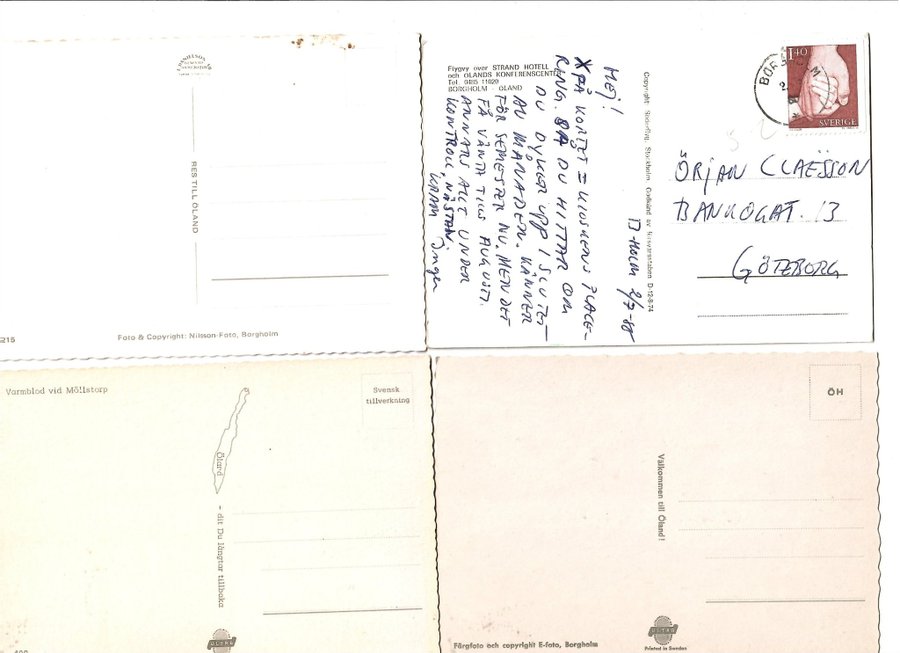 RES TILL ÖLAND
Foto & Copyright: Nilsson-Foto, Borgholm
Flygvy over STRAND HOTELL
och ÖLANDS KONFERENSCENTER
Tel. 0485 11020
BORGHOLM - ÖLAND
HEJ!
X PÅ KORTET = KIOSKENS PLACE-
RING. SÅ DU HITTAR OM
DU DYKER UPP I SLUTET
AV MÅNADEN. KÄNNER
FÖR SEMESTER NU. MEN DET
FÅ VÄNTA TILLS AUGUSTI.
ANNARS ALLT UNDER
KONTROLL, NÄSTAN.
KRAM Inger
B-HOLM 2/7-80
Copyright: Skån-flyg, Stockholm. Godkänd av försvarsstaben D 12-8-74
BORGHOLM
1.40
SVERIGE
ÖRJAN CLAËSSON
BANKOGAT. 13
GÖTEBORG
Varmblod vid Möllstorp
Svensk
tillverkning
Öland - dit Du längtar tillbaka
ÖH
Välkommen till Öland!
Färgfoto och copyright E-foto, Borgholm
Printed in Sweden